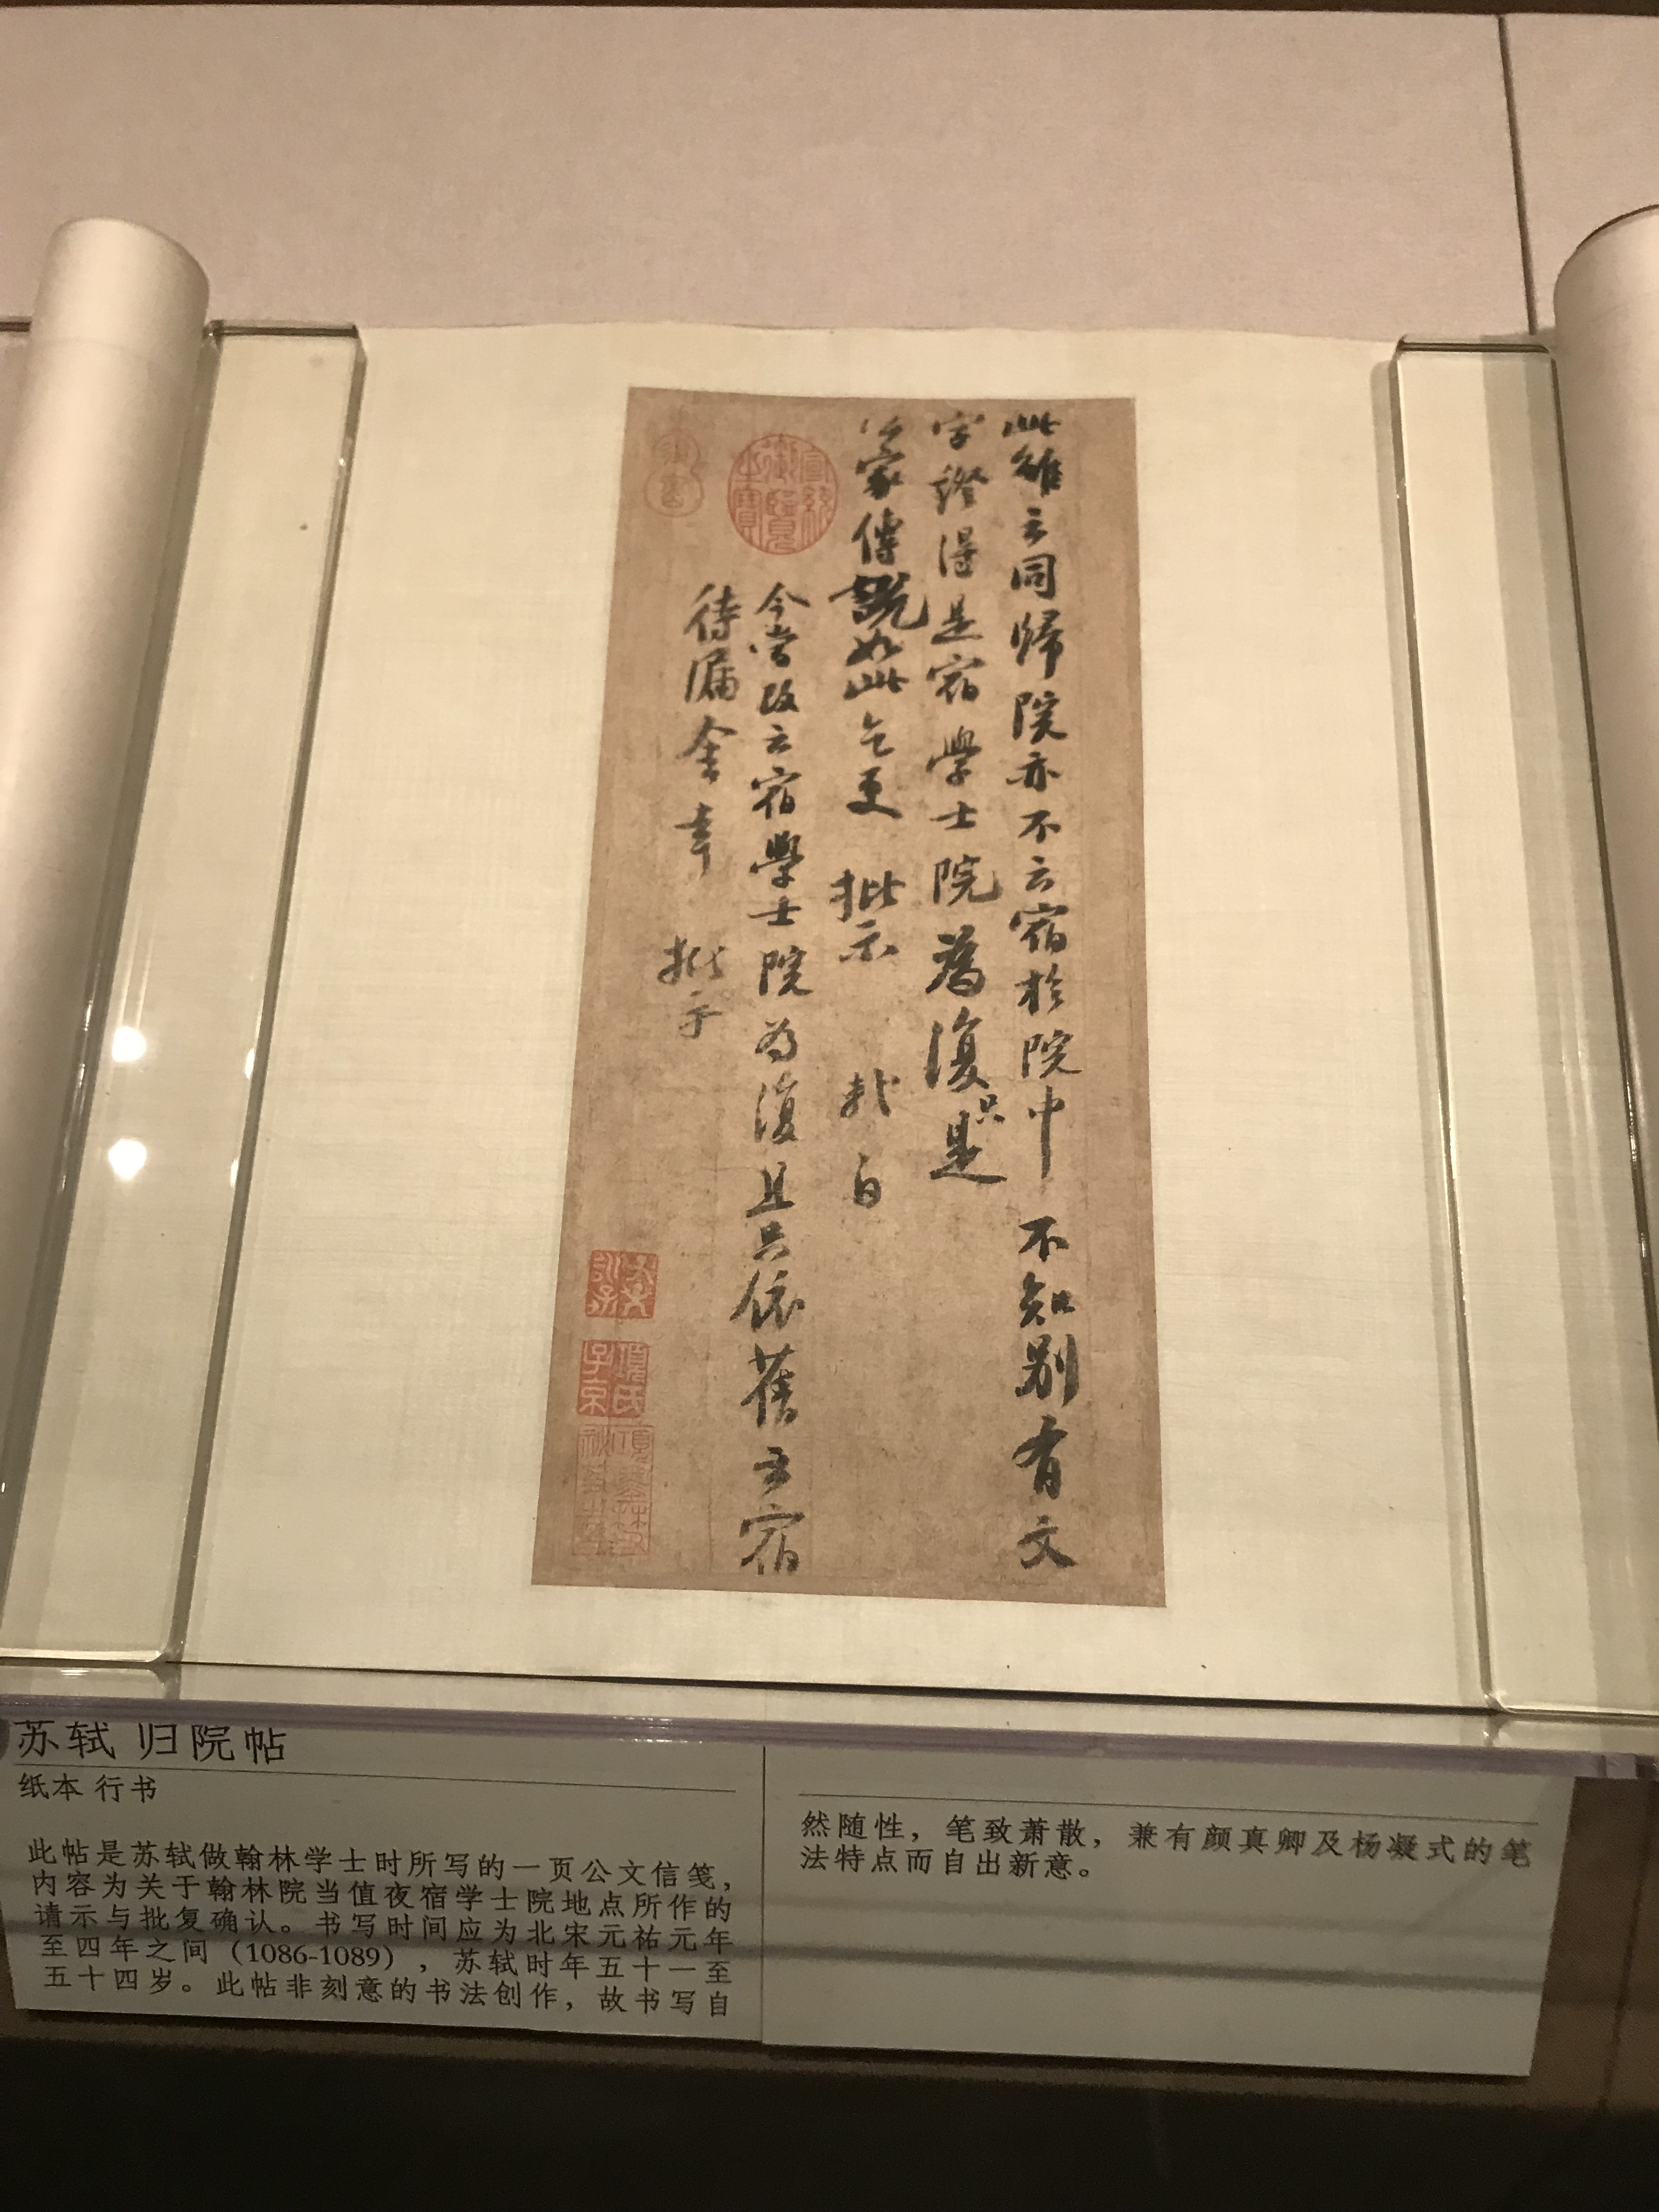 此雖云同歸院亦不云宿於院中不知別有文
字證得是宿學士院為復只是
家傳說如此乞更批示 軾白
今嘗改云宿學士院為復且只依舊云宿
待漏舍幸批示
宣統御覽之寶
項氏子京
苏轼 归院帖
纸本 行书
此帖是苏轼做翰林学士时所写的一页公文信笺，
内容为关于翰林院当值夜宿学士院地点所作的
请示与批复确认。书写时间应为北宋元祐元年
至四年之间（1086-1089），苏轼时年五十一至
五十四岁。此帖非刻意的书法创作，故书写自
然随性，笔致萧散，兼有颜真卿及杨凝式的笔
法特点而自出新意。